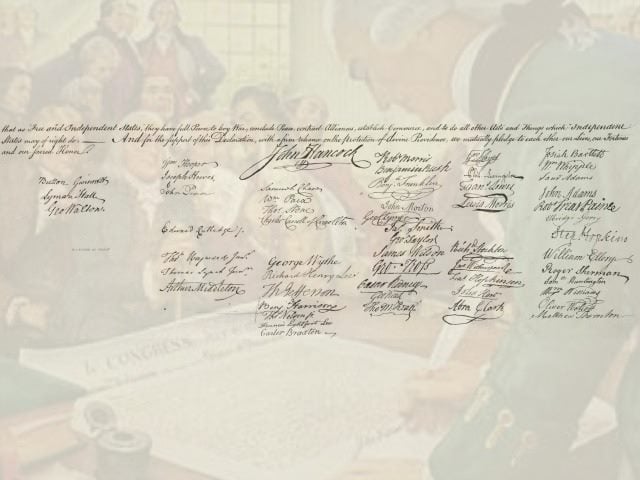 that as Free and Independent States, they have full Power to levy War, conclude Peace, contract Alliances, establish Commerce, and to do all other Acts and Things which Independent
States may of right do. — And for the support of this Declaration, with a firm reliance on the protection of divine Providence, we mutually pledge to each other our Lives, our Fortunes
and our sacred Honor.
Button Gwinnett
Lyman Hall
Geo Walton.
Wm Hooper
Joseph Hewes,
John Penn
Edward Rutledge /.
Thos Heyward Junr.
Thomas Lynch Junr.
Arthur Middleton
John Hancock
Samuel Chase
Wm Paca
Thos Stone
Charles Carroll of Carrollton
George Wythe
Richard Henry Lee
Th Jefferson
Benj Harrison
Thos Nelson jr.
Francis Lightfoot Lee
Carter Braxton
Robt Morris
Benjamin Rush
Benj. Franklin
John Morton
Geo Clymer
Jas Smith
Geo. Taylor
James Wilson
Geo. Ross
Caesar Rodney
Geo Read
Tho M:Kean
Wm Floyd
Phil. Livingston
Frans. Lewis
Lewis Morris
Richd. Stockton
Jno Witherspoon
Fras. Hopkinson
John Hart
Abra Clark
Josiah Bartlett
Wm Whipple
Saml Adams
John Adams
Robt Treat Paine
Elbridge Gerry
Step Hopkins
William Ellery
Roger Sherman
Saml Huntington
Wm Williams
Oliver Wolcott
Matthew Thornton
CONGRESS,